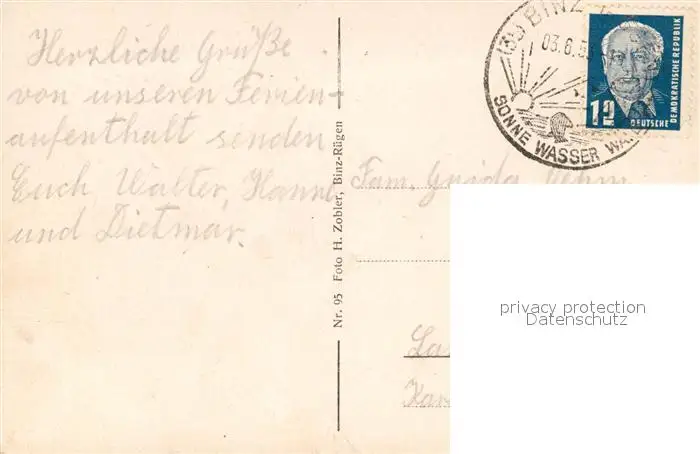 Herzliche Grüße
von unseren Ferien-
aufenthalt senden
Euch Walter, Hanne
und Dietmar.
Nr. 95 Foto H. Zobler, Binz-Rügen
BINZ
03.6.53
SONNE WASSER
12
DEUTSCHE
DEMOKRATISCHE REPUBLIK
Fam.
privacy protection
Datenschutz